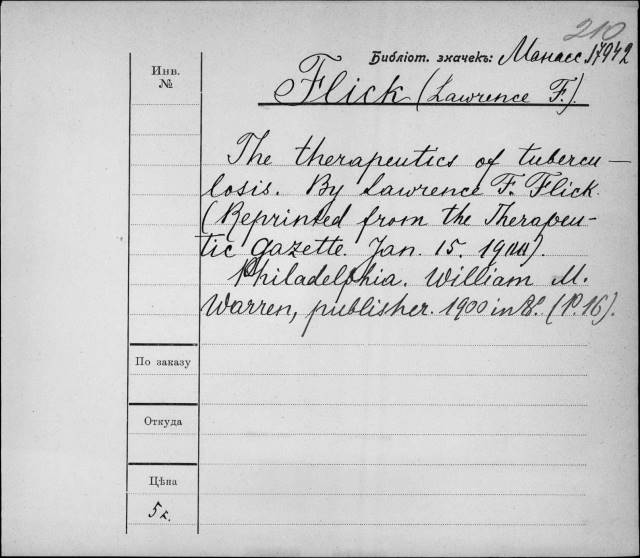 210
Библіот. значекъ: Манасс 17942
Инв.
№
Flick (Lawrence F.).
The therapeutics of tubercu—
losis. By Lawrence F. Flick.
(Reprinted from the Therapeu-
tic gazette. Jan. 15. 1900).
Philadelphia. William M.
Warren, publisher. 1900 in 8º. (P. 16).
По заказу
Откуда
Цѣна
5 к.